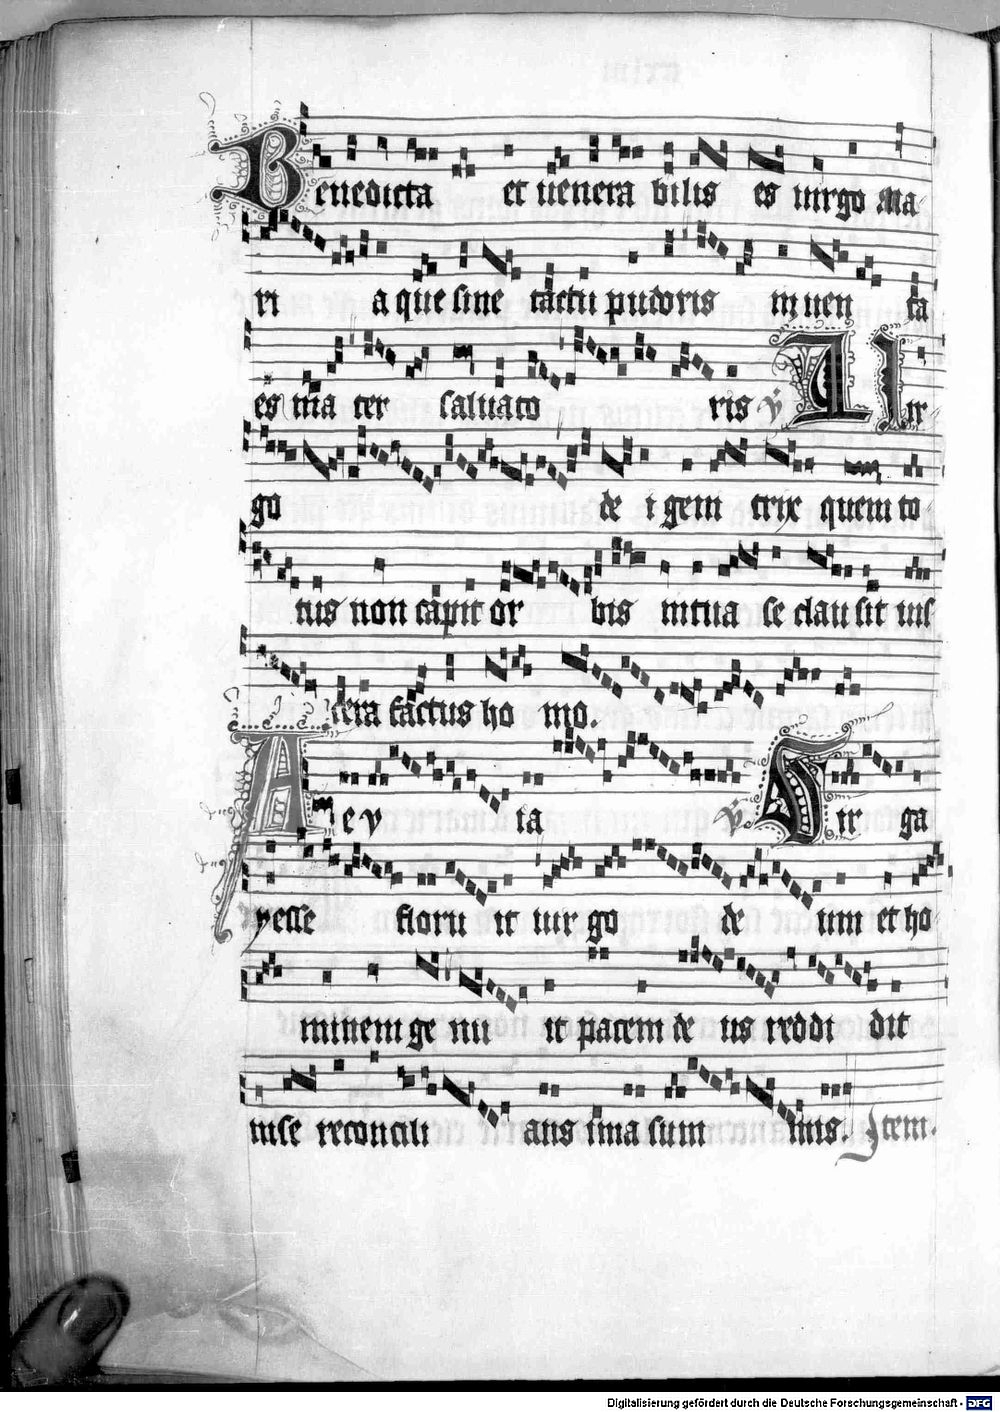 Benedicta et uenera bilis es uirgo Ma
ri a que sine tactu pudoris inuen ta
es ma ter saluato ris ℣ Uir
go de i geni trix quem to
tus non capit or bis in tua se clausit uis
cera factus ho mo.
Alleu ia ℣ Uir ga
yesse floru it uir go de um et ho
minem ge nu it pacem de us reddi dit
in se reconcili ans ima sum mis. Item.
Digitalisierung gefördert durch die Deutsche Forschungsgemeinschaft - DFG